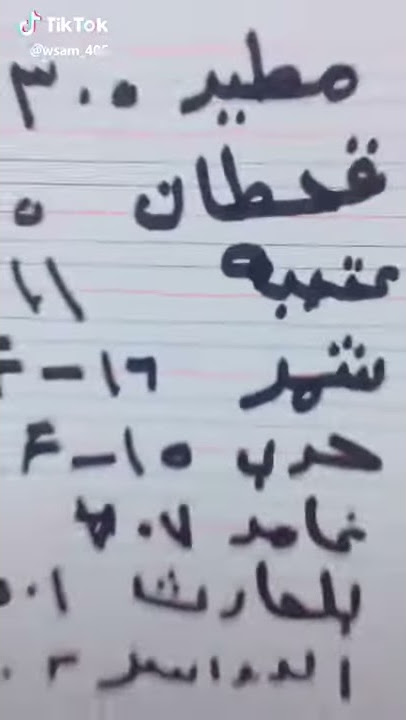 TikTok
@wsam_405
مطير ٣٠٠
قحطان ٥
عتيبه ١١
شهر ١٦-
حرب ١٥-٢
غامد ٧٠٧
بلحارث ٠١
الدواسر ٢٠